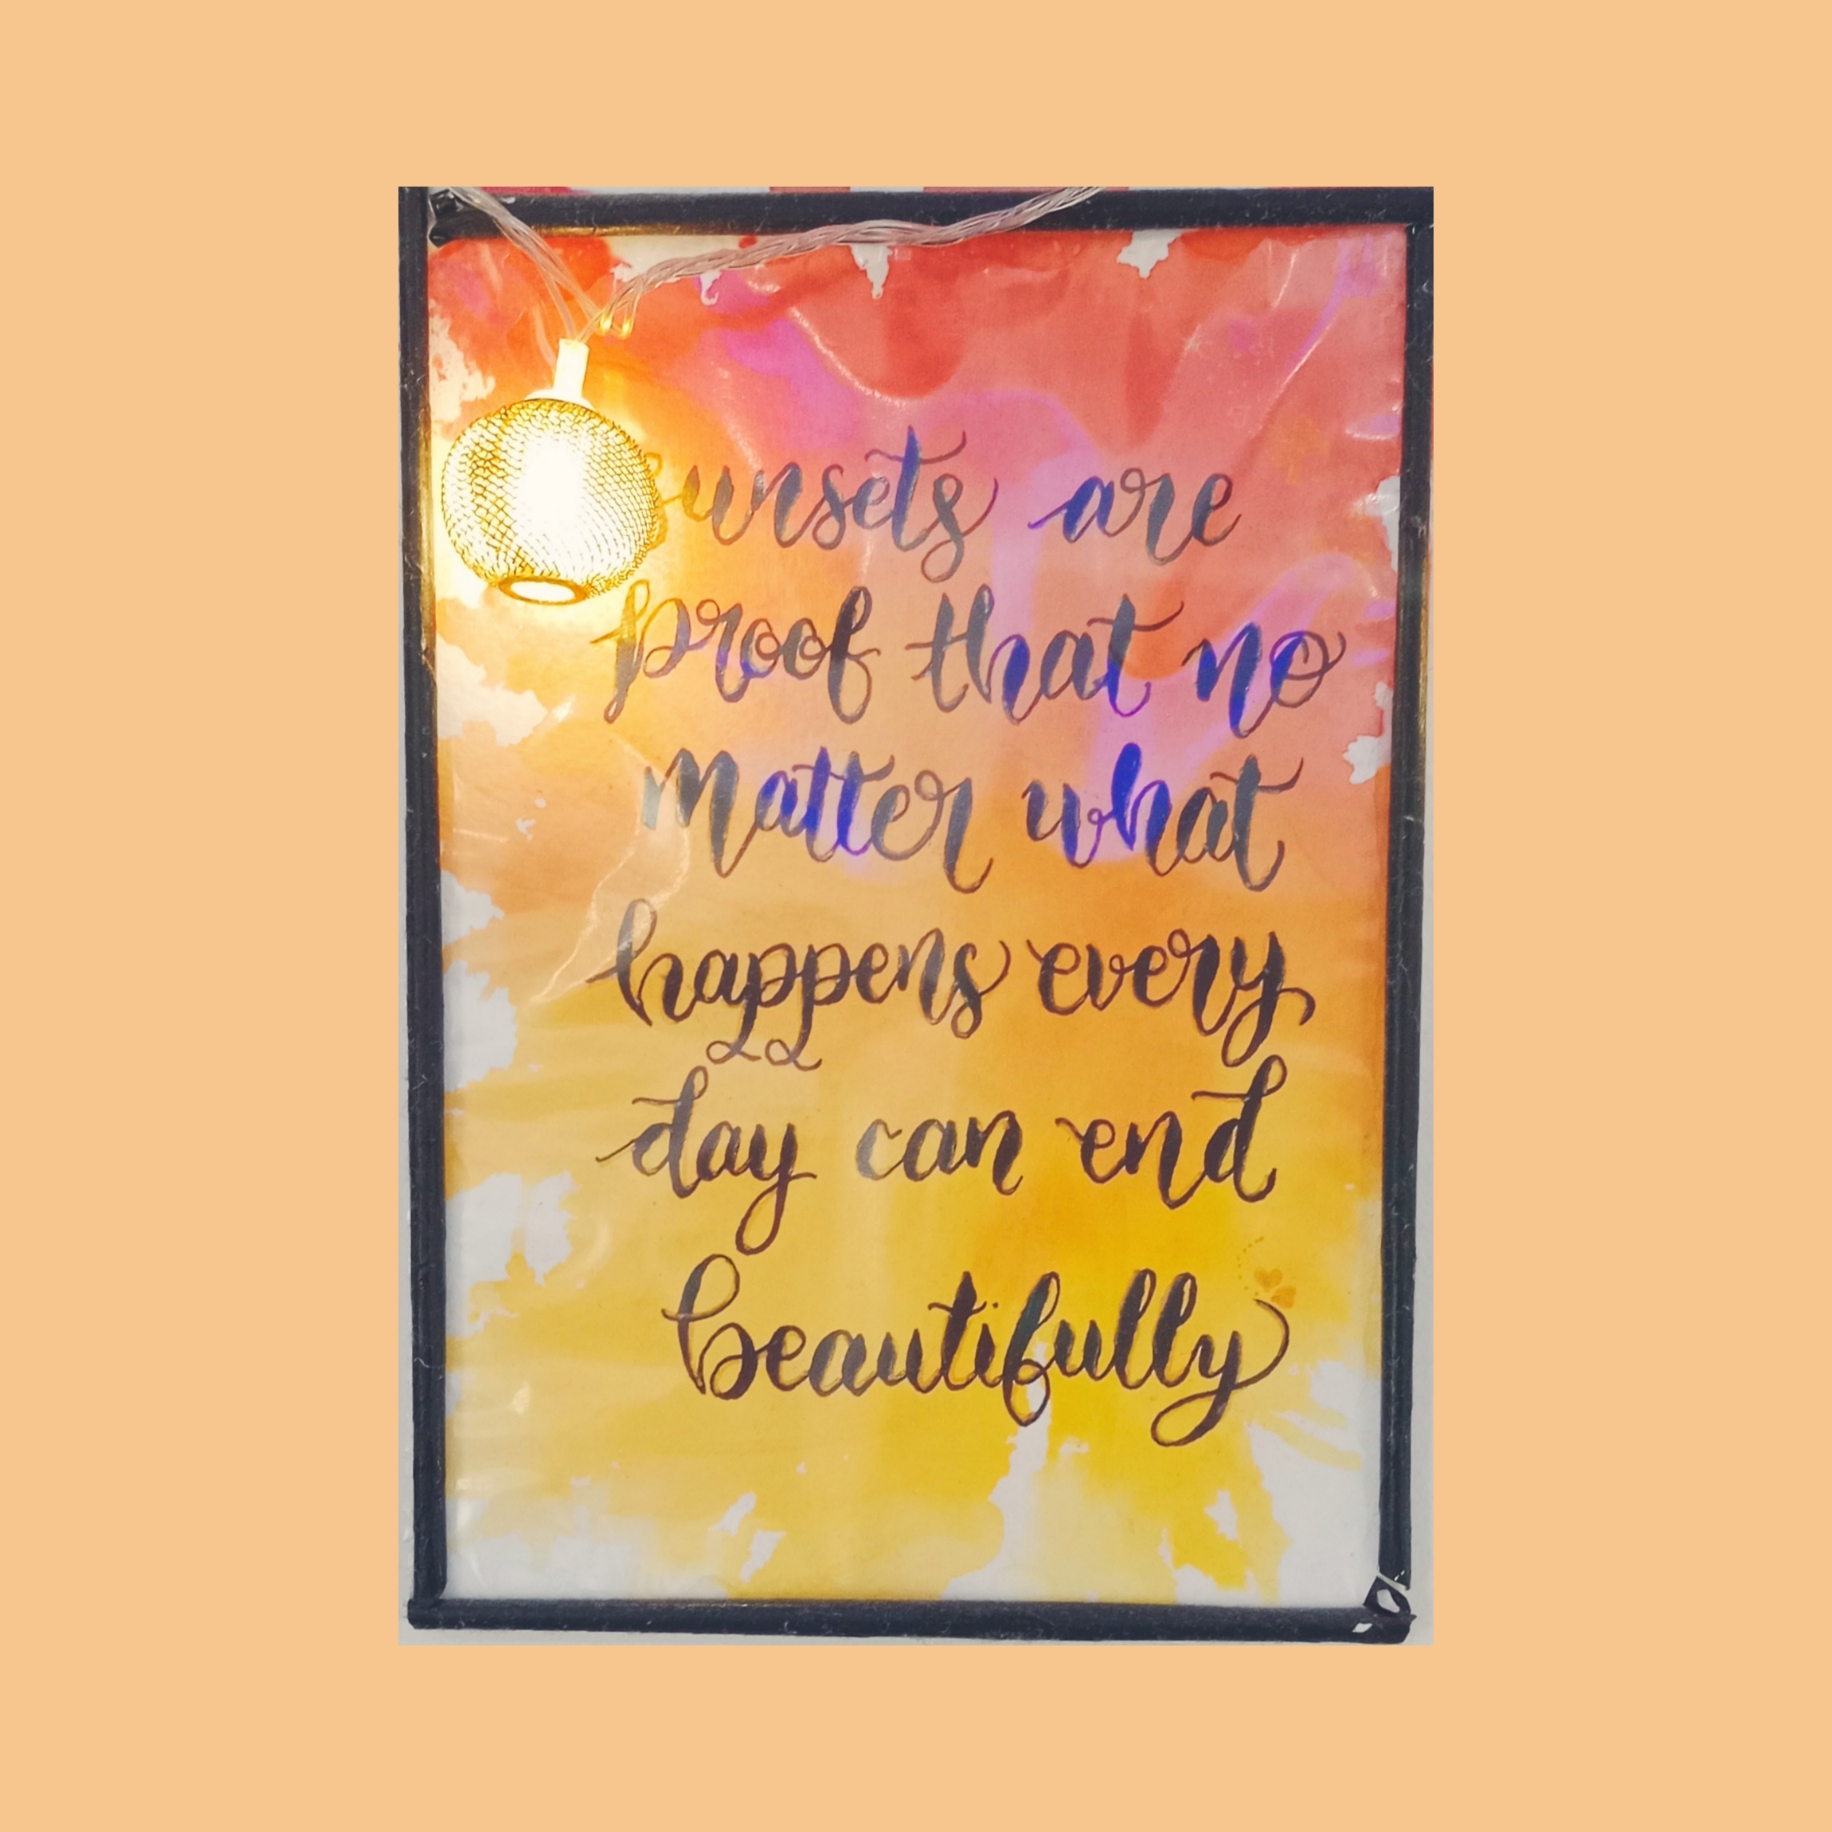 Sunsets are
proof that no
matter what
happens every
day can end
beautifully